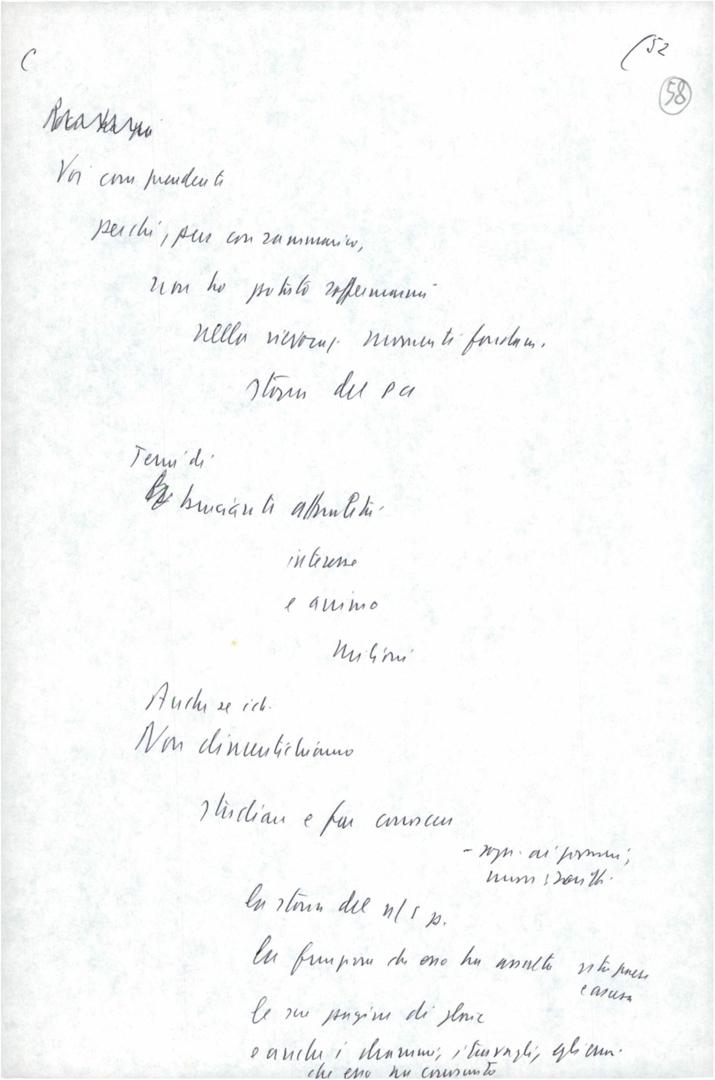 (
(52
58
Voi comprenderete
perché, pur con rammarico,
non ho potuto soffermarmi
nella rievocaz. momenti fondam.
storia del PCI
Temi di
bruciante attualità
interesse
e animo
milioni
Anche se
Non dimentichiamo
studiare e far conoscere
- sopr. ai giovani,
nuovi iscritti.
la storia del n/s p.
la funzione che esso ha assolto
le sue pagine di gloria
e anche i drammi, i travagli, gli err.
che esso ha conosciuto